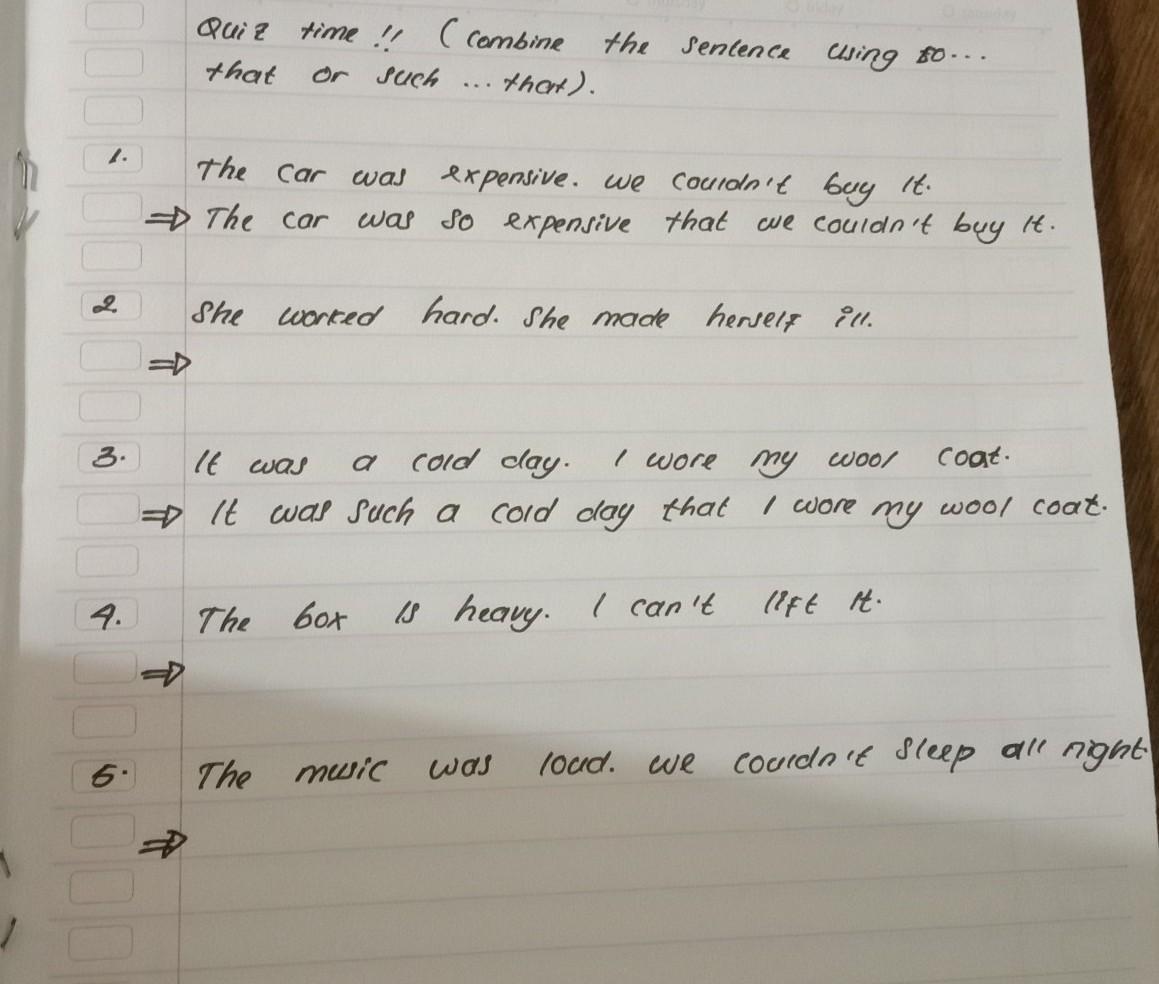 Quiz time !! ( Combine the sentence using so...
that or such ... that).
1. The car was expensive. we couldn't buy It.
⇒ The car was so expensive that we couldn't buy It.
2. She worked hard. She made herself ill.
⇒
3. It was a cold day. I wore my wool coat.
⇒ It was such a cold day that I wore my wool coat.
4. The box Is heavy. I can't lift It.
⇒
5. The music was loud. we couldn't sleep all night
⇒